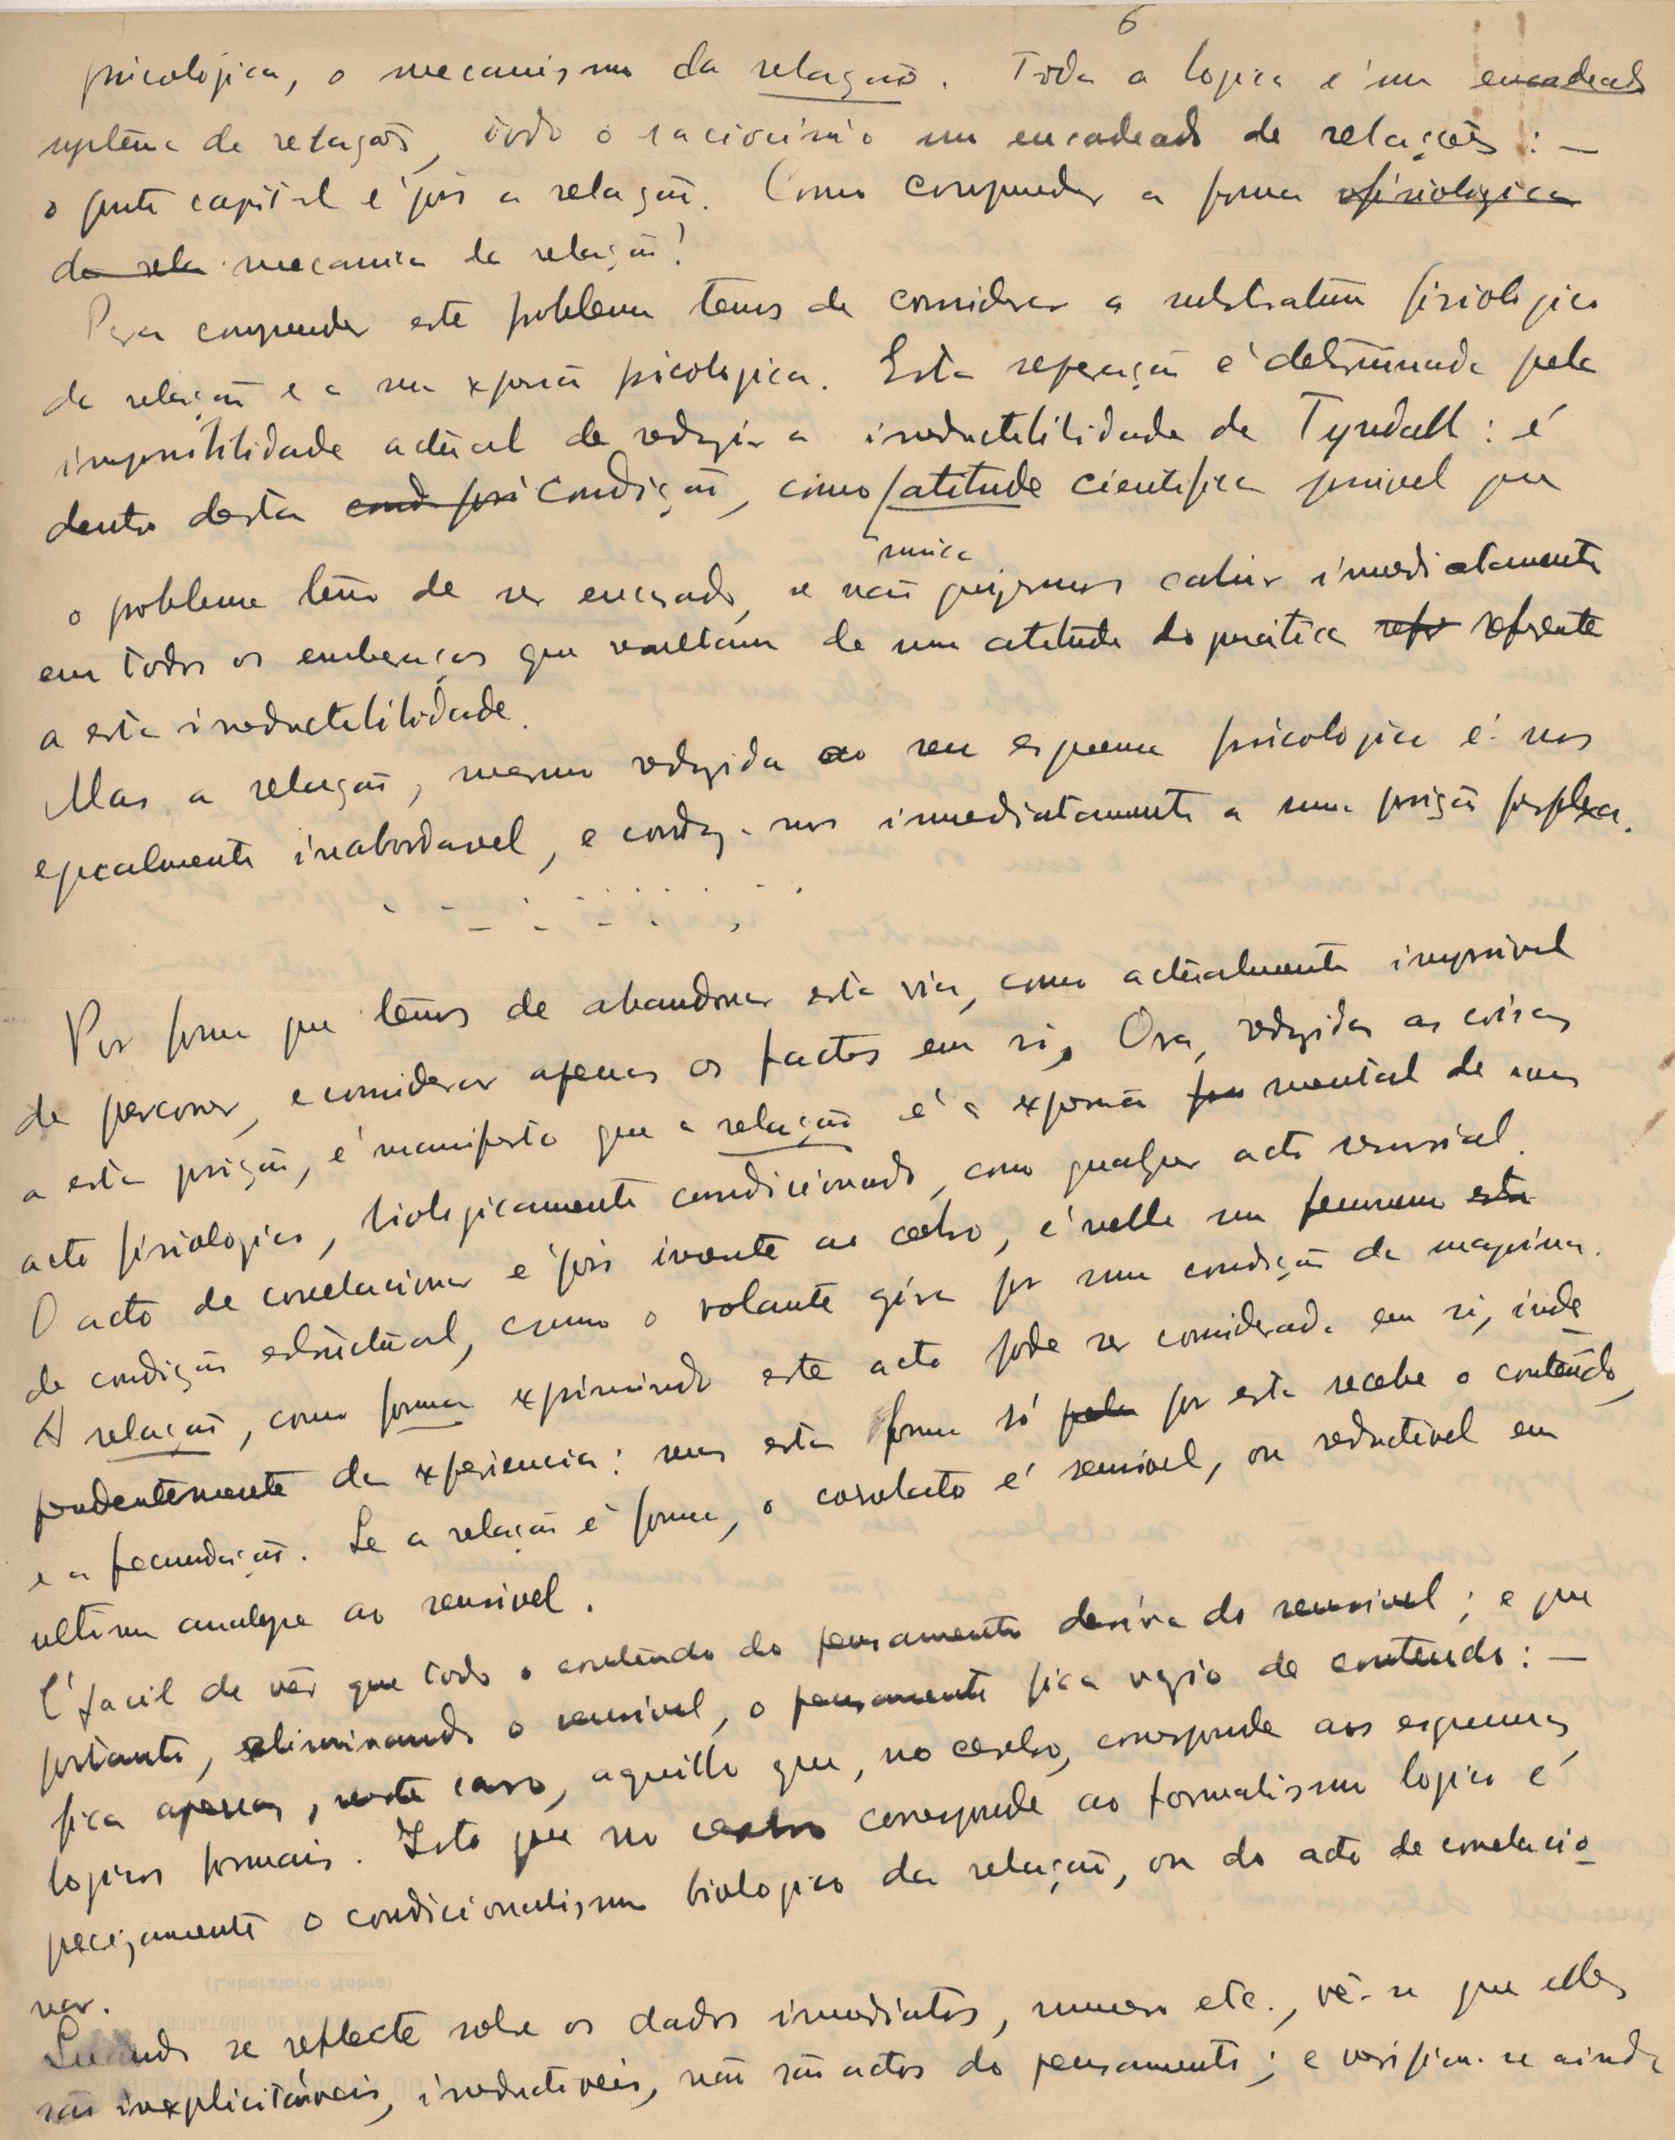 6
psicologica, o mecanismo da relação. Toda a logica é um encadeado
systema de relações, todo o raciocinio um encadeado de relações : —
o ponto capital é pois a relação. Como comprender a forma ofisiologica
da rela mecanica da relação?
Para comprender este problema temos de considerar o substratum fisiologico
da relação e a sua expressão psicologica. Esta separação é determinada pela
impossibilidade actual de reduzir a irreductibilidade de Tyndall : é
dentro desta cond psi condição, como atitude cientifica possivel que
unica
o problema tem de ser encarado, se não quizermos cahir imediatamente
em todos os embaraços que resultam de uma atitude do pratica refe referente
a esta irreductibilidade.
Mas a relação, mesmo reduzida ao seu esquema psicologico é-nos
egualmente inabordavel, e conduz-nos imediatamente a uma posição perplexa.
Por forma que temos de abandonar esta via, como actualmente impossivel
de percorrer, e considerar apenas os factos em si. Ora, reduzidas as coisas
a esta posição, é manifesto que a relação é a expressão mental de um
acto fisiologico, biologicamente condicionado, como qualquer acto sensorial.
O acto de correlacionar é pois inerente ao cerebro, é nelle um fenomeno esta
de condição estructural, como o volante gira por uma condição da maquina.
A relação, como forma exprimindo este acto pode ser considerada em si, inde
pendentemente da experiencia : mas esta forma só pela por esta recebe o conteúdo,
e a fecundação. Se a relação é forma, o correlato é sensivel, ou reductivel em
ultima analyse ao sensivel.
É facil de vêr que todo o conteúdo do pensamento deriva do sensivel ; e que
portanto, eliminando o sensivel, o pensamento fica vazio de conteudo : —
fica apenas, neste caso, aquillo que, no cerebro, corresponde aos esquemas
logicos formais. Isto que no cerebro corresponde ao formalismo logico é
precizamente o condicionalismo biologico da relação, ou do acto de correlacio
nar.
Quando se reflecte sobre os dados imediatos, numero etc., vê-se que elles
são inexplicitáveis, irreductiveis, não são actos do pensamento ; e verifica-se ainda